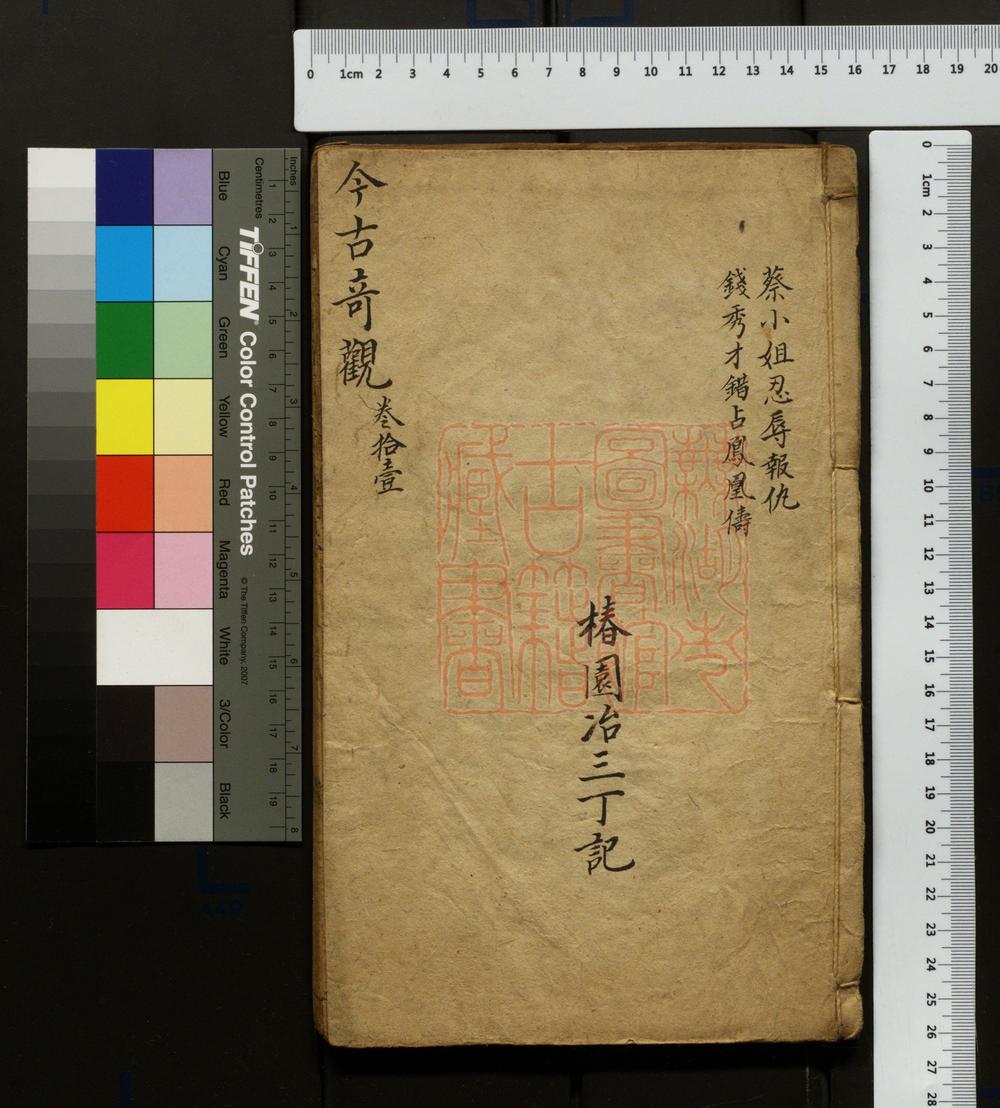 0 1cm 2 3 4 5 6 7 8 9 10 11 12 13 14 15 16 17 18 19 20
0 1cm 2 3 4 5 6 7 8 9 10 11 12 13 14 15 16 17 18 19 20 21 22 23 24 25 26 27 28
Inches
1 2 3 4 5 6 7 8
Centimetres
1 2 3 4 5 6 7 8 9 10 11 12 13 14 15 16 17 18 19
TIFFEN® Color Control Patches
© The Tiffen Company, 2007
Blue
Cyan
Green
Yellow
Red
Magenta
White
3/Color
Black
蔡小姐忍辱報仇
錢秀才錯占鳳凰儔
椿園冶三丁記
今古奇觀
卷拾壹
蕪湖市
圖書館
古籍
藏書